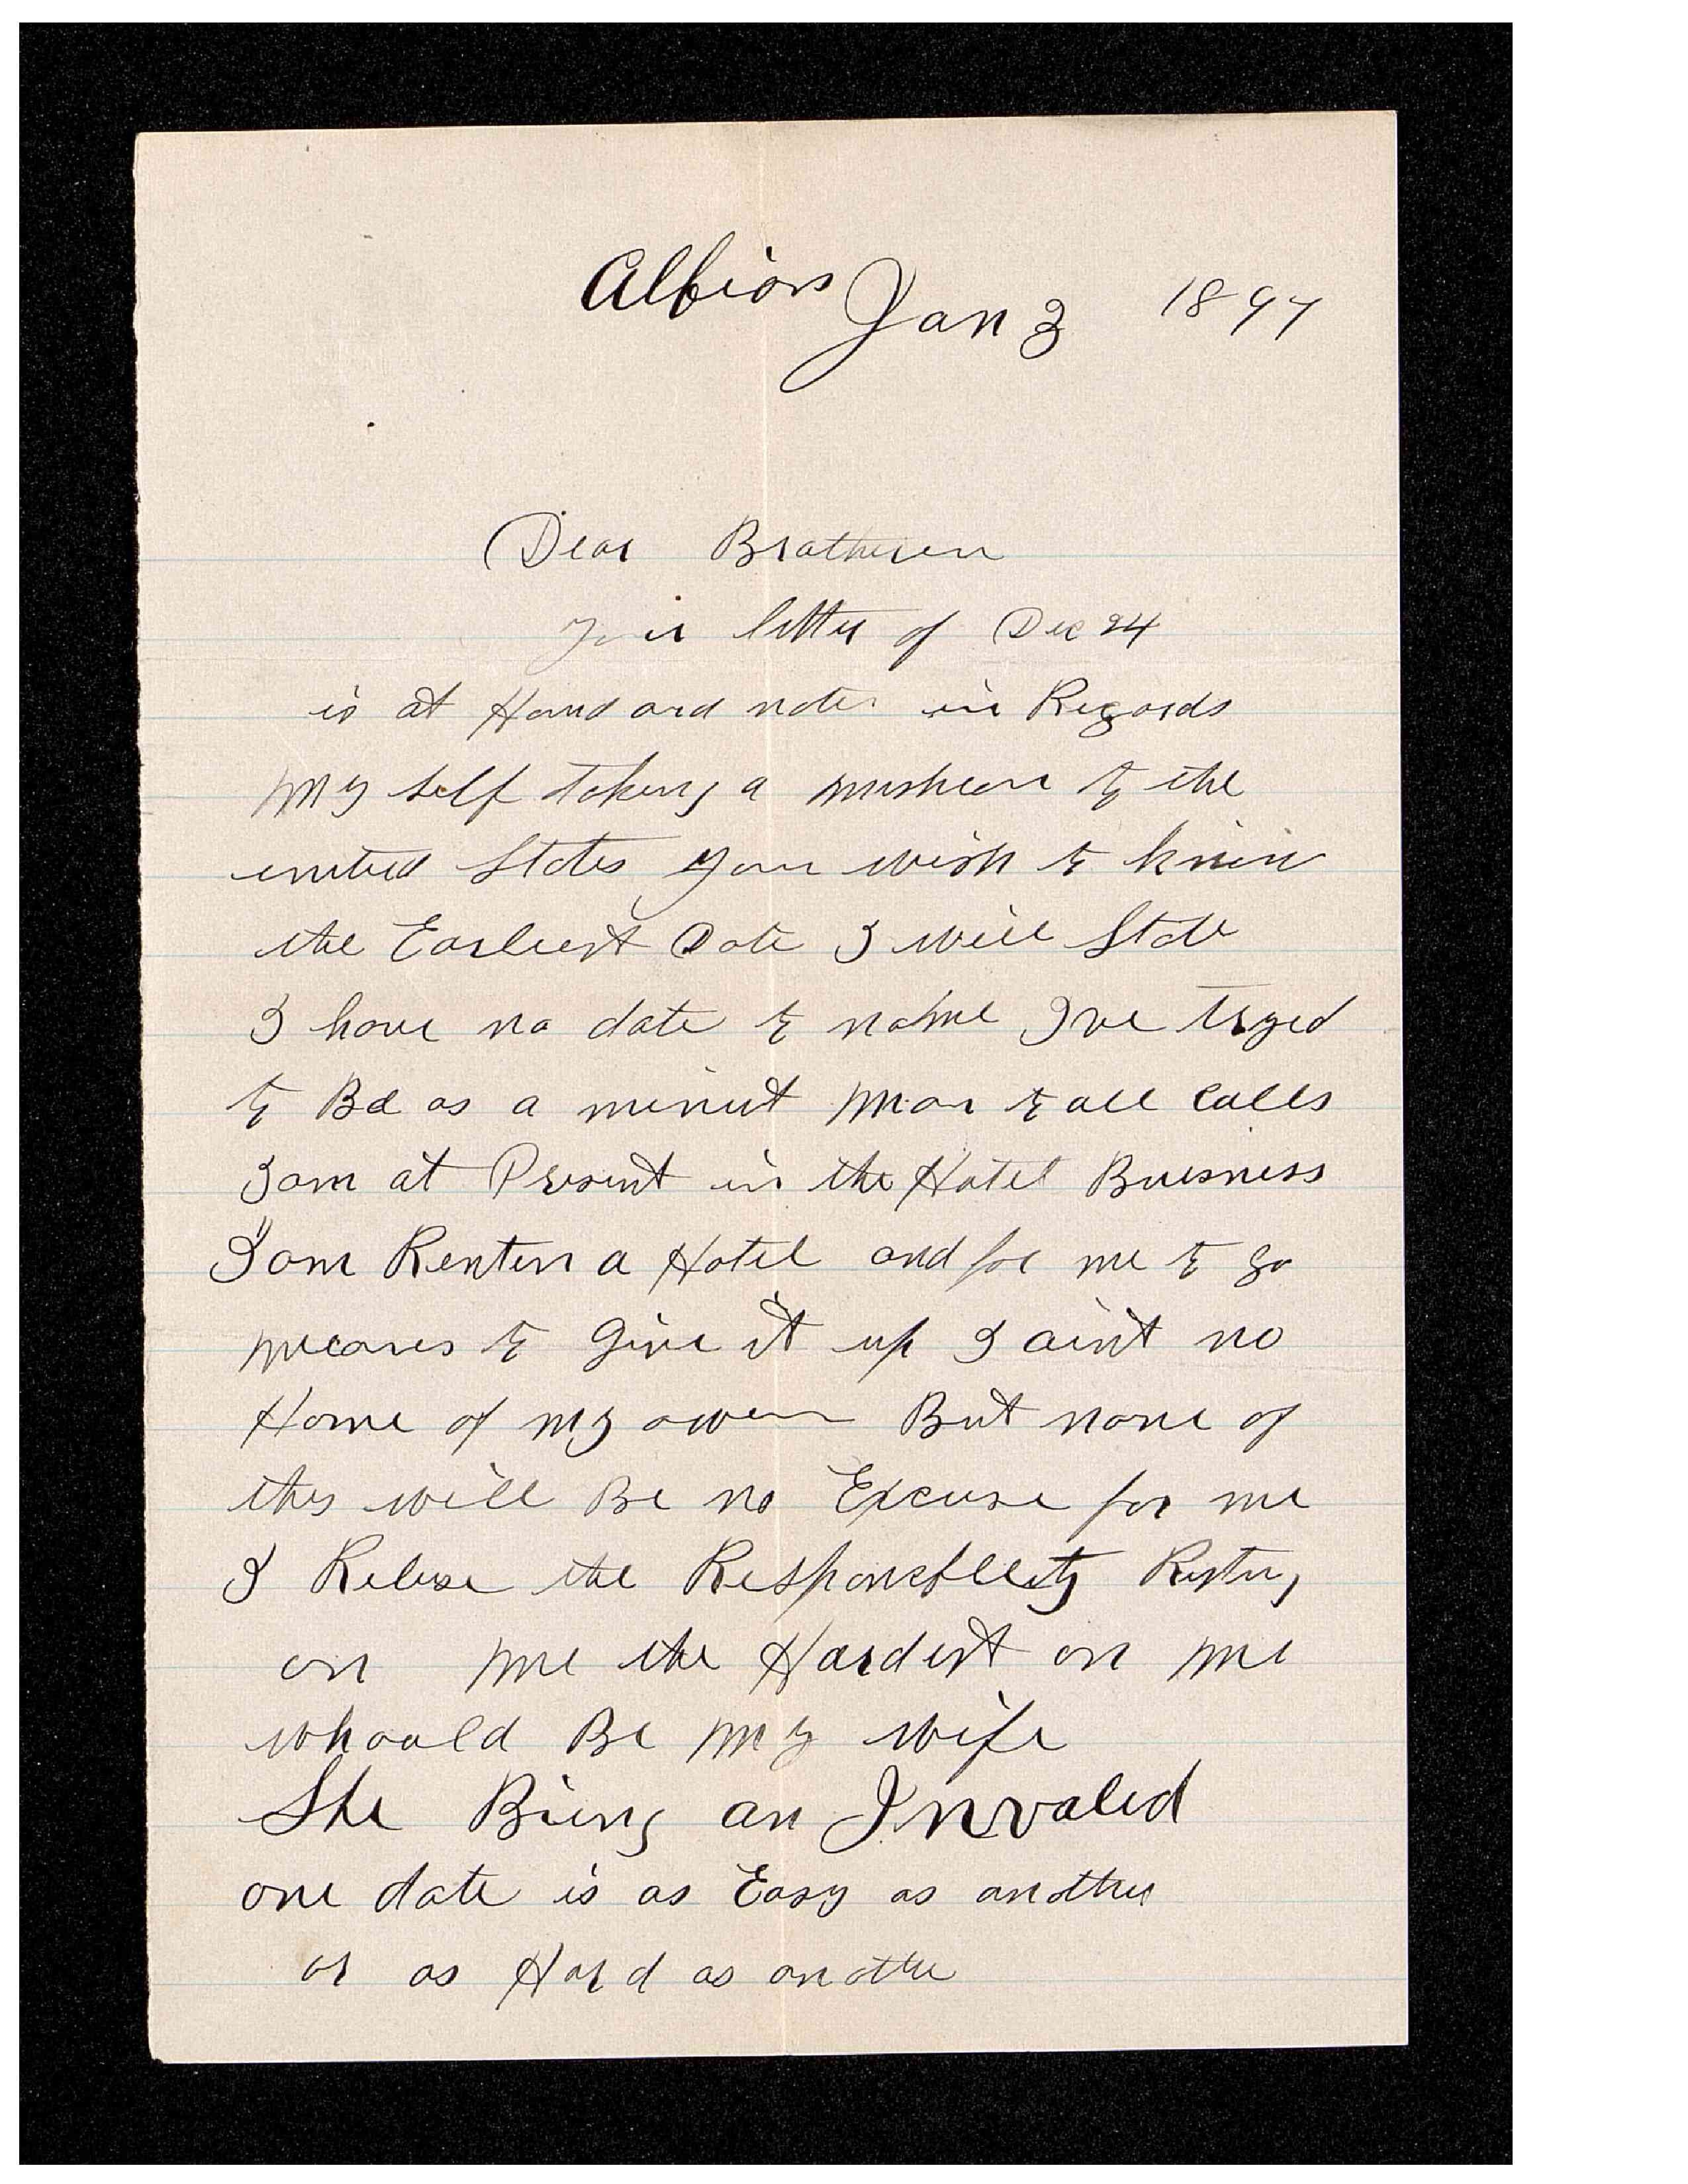 Albion Jan 3 1897
Dear Bratheren
Your letter of Dec 24
is at Hand and note in Regards
My self taking a mishion to the
united States you wish to know
the Earliest Date I will State
I have no date to name Ive tryed
to Be as a minut Man to all calls
I am at Present in the Hotel Buesness
I am Renten a Hotel and for me to go
meanes to Give it up I aint no
Home of my owen But none of
this will Be no Excuse for me
I Relise the Responsbleety Resting
on me the Hardest on me
whoould Be my wife
She Biing an Invaled
one date is as Easy as another
or as Hard as another